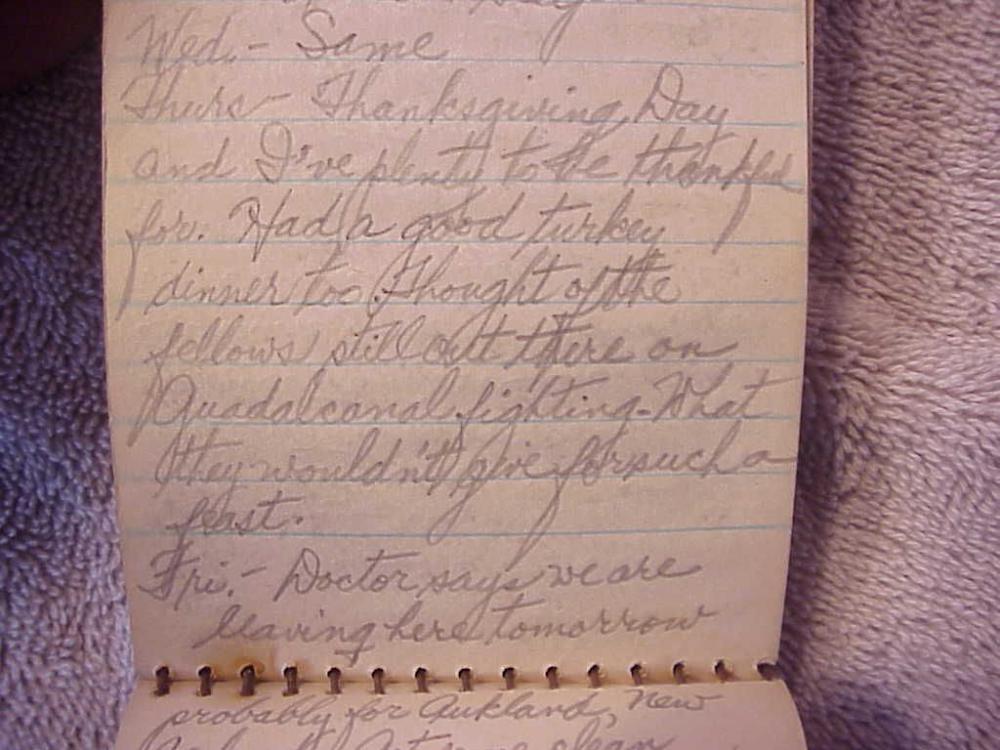 Wed. - Same
Thurs - Thanksgiving Day
and I've plenty to be thankful
for. Had a good turkey
dinner too. Thought of the
fellows still out there on
Guadalcanal fighting - What
they wouldn't give for such a
feast.
Fri. - Doctor says we are
leaving here tomorrow
probably for Aukland, New
clean